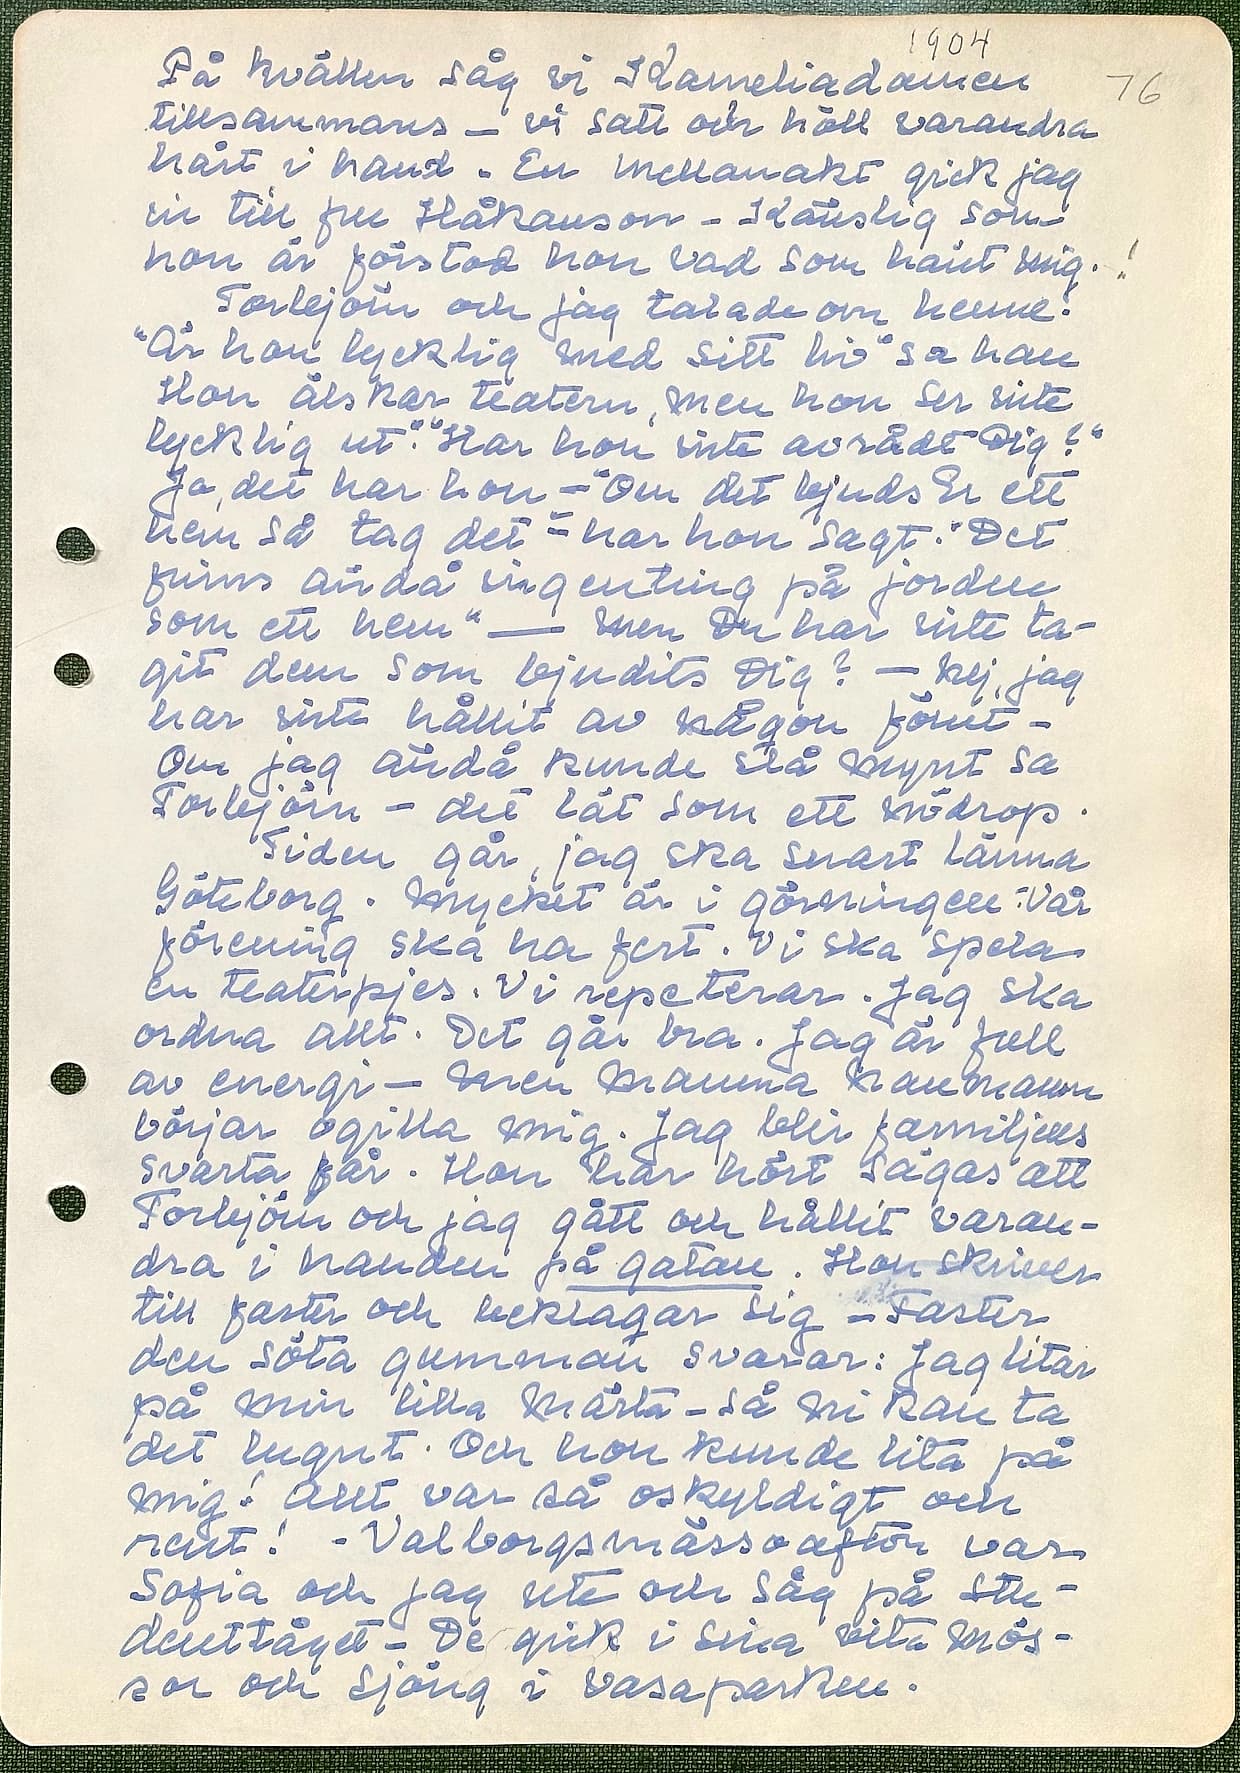 1904
76
På kvällen såg vi Kameliadamen
tillsammans – vi satt och höll varandra
hårt i hand. En mellanakt gick jag
in till fru Håkanson – Känslig som
hon är förstod hon vad som hänt mig. !
Torbjörn och jag talade om henne:
"Är hon lycklig med sitt liv" sa han
Hon älskar teatern, men hon ser inte
lycklig ut." "Har hon inte avrådt Dig?"
Ja, det har hon – "Om det bjuds Er ett
hem så tag det" – har hon sagt. "Det
finns ändå ingenting på jorden
som ett hem" — Men Du har inte ta-
git dem som bjudits Dig? — Nej, jag
har inte hållit av någon förut –
Om jag ändå kunde slå mynt sa
Torbjörn – det lät som ett nödrop.
Tiden går, jag ska snart lämna
Göteborg. Mycket är i görningen: Vår
förening ska ha fest. Vi ska spela
en teaterpjes. Vi repeterar. Jag ska
ordna allt. Det går bra. Jag är full
av energi — Men Mamma Naumann
börjar ogilla mig. Jag blir familjens
svarta får. Hon har hört sägas att
Torbjörn och jag gått och hållit varan-
dra i handen på gatan. Hon skriver
till faster och beklagar sig – Faster
den söta gumman svarar: Jag litar
på min lilla Märta – så Ni kan ta
det lugnt. Och hon kunde lita på
mig! Allt var så oskyldigt och
rent! – Valborgsmässoafton var
Sofia och jag ute och såg på stu-
denttåget – De gick i sina vita mös-
sor och sjöng i Vasaparken.